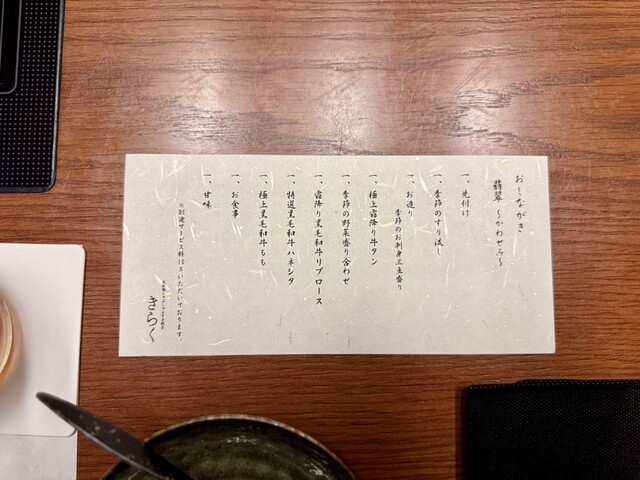 おしながき
翡翠 ～かわせみ～
一、先付け
一、季節のすり流し
一、お造り
季節のお刺身三点盛り
一、極上霜降り牛タン
一、季節の野菜盛り合わせ
一、霜降り黒毛和牛リブロース
一、特選黒毛和牛ハネシタ
一、極上黒毛和牛もも
一、お食事
一、甘味
※別途サービス料10%いただいております。
きらく